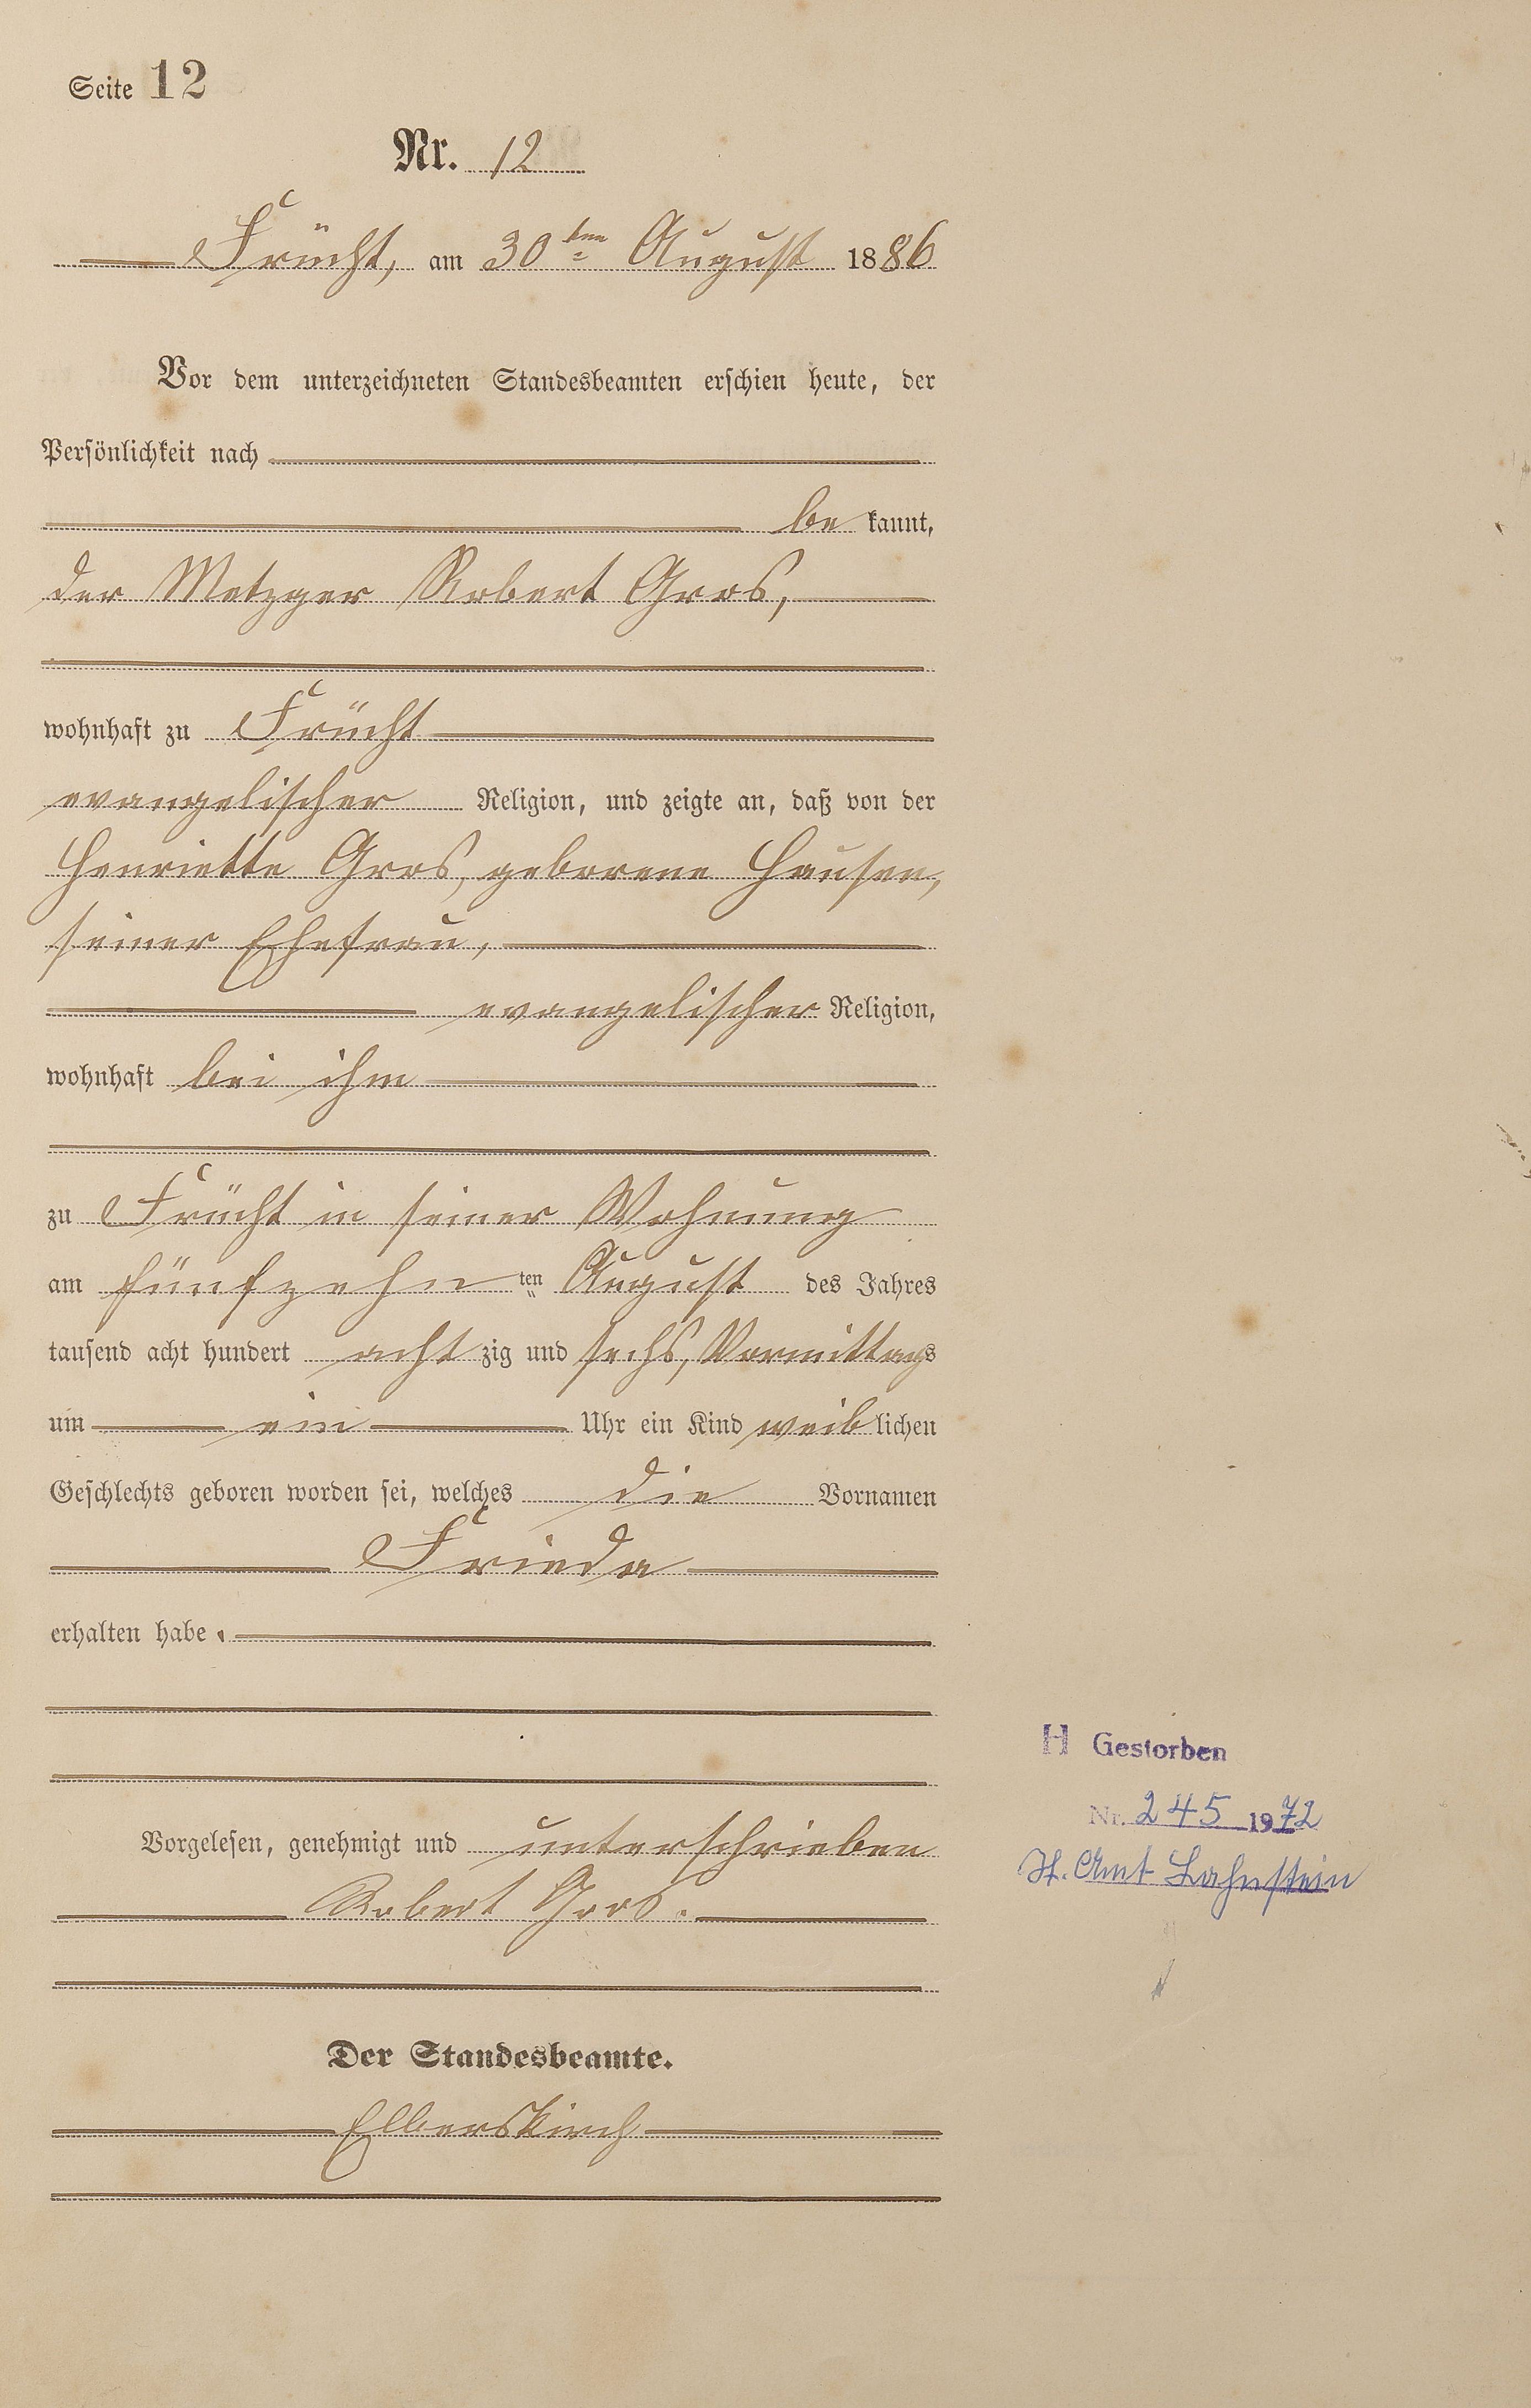 Seite 12
Nr. 12
Frücht, am 30ten August 1886
Vor dem unterzeichneten Standesbeamten erschien heute, der
Persönlichkeit nach
be kannt,
der Metzger Robert Gros,
wohnhaft zu Frücht
evangelischer Religion, und zeigte an, daß von der
Henriette Gros, geborene Hausen,
seiner Ehefrau,
evangelischer Religion,
wohnhaft bei ihm
zu Frücht in seiner Wohnung
am fünfzehn ten August des Jahres
tausend acht hundert acht zig und sechs, Vormittags
um ein Uhr ein Kind weib lichen
Geschlechts geboren worden sei, welches die Vornamen
Frieda
erhalten habe.
H Gestorben
Nr. 245 1972
St. Amt Lahnstein
Vorgelesen, genehmigt und unterschrieben
Robert Gros.
Der Standesbeamte.
Elberskirch